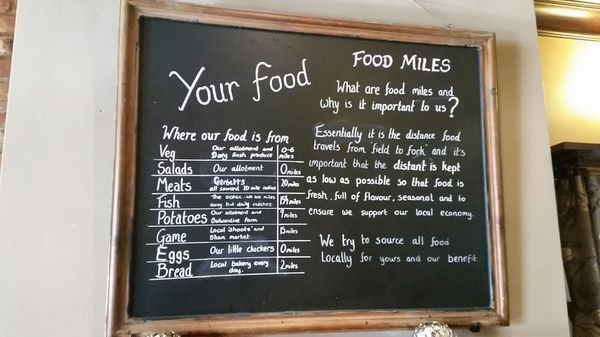 Your food
Where our food is from
Veg Our allotment and 0-6
Daily fresh produce miles
Salads Our allotment 0 miles
Meats all sourced 20 mile radius 20 miles
Fish The ocean. We are miles
away but daily catches. miles
Potatoes Our allotment and
Farm miles
Game Local 'shoots' and
market. 15 miles
Eggs Our little cluckers 0 miles
Bread Local bakery every
day. 2 miles
FOOD MILES
What are food miles and
why is it important to us?
Essentially it is the distance food
travels from 'field to fork' and it's
important that the distant is kept
as low as possible so that food is
fresh, full of flavour, seasonal and to
ensure we support our local economy.
We try to source all food
Locally for yours and our benefit.